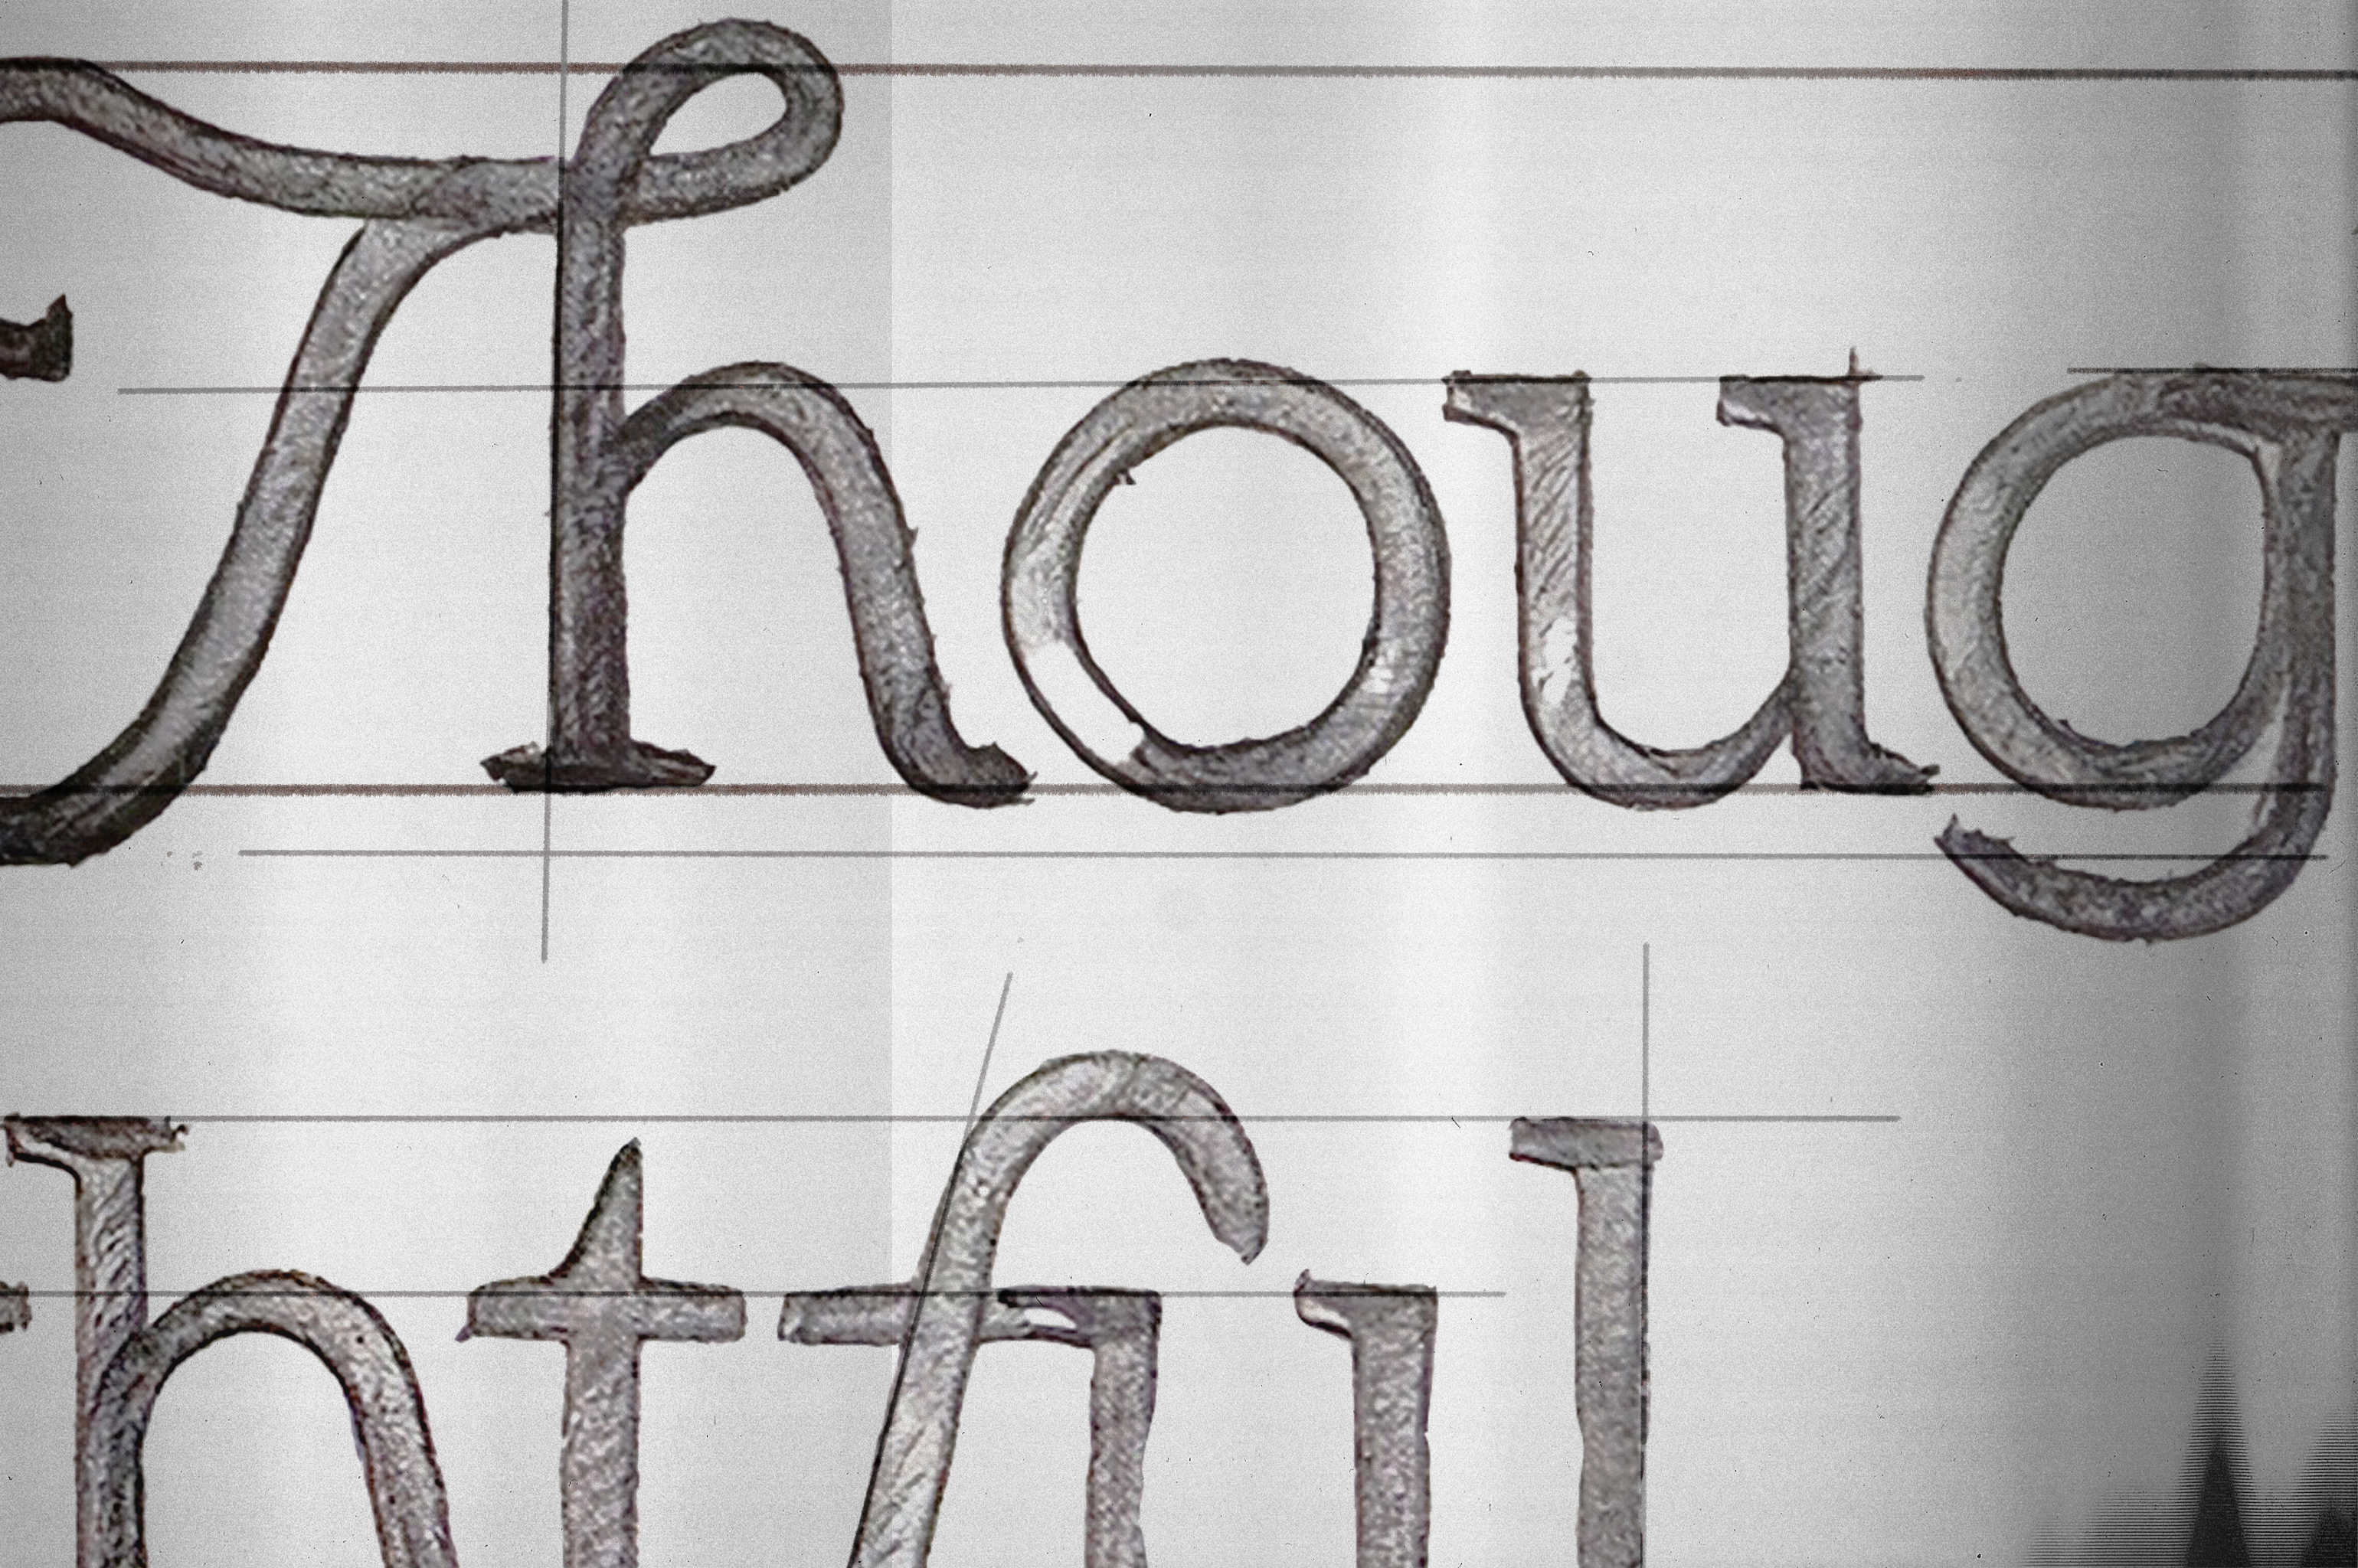 Thoug
htful